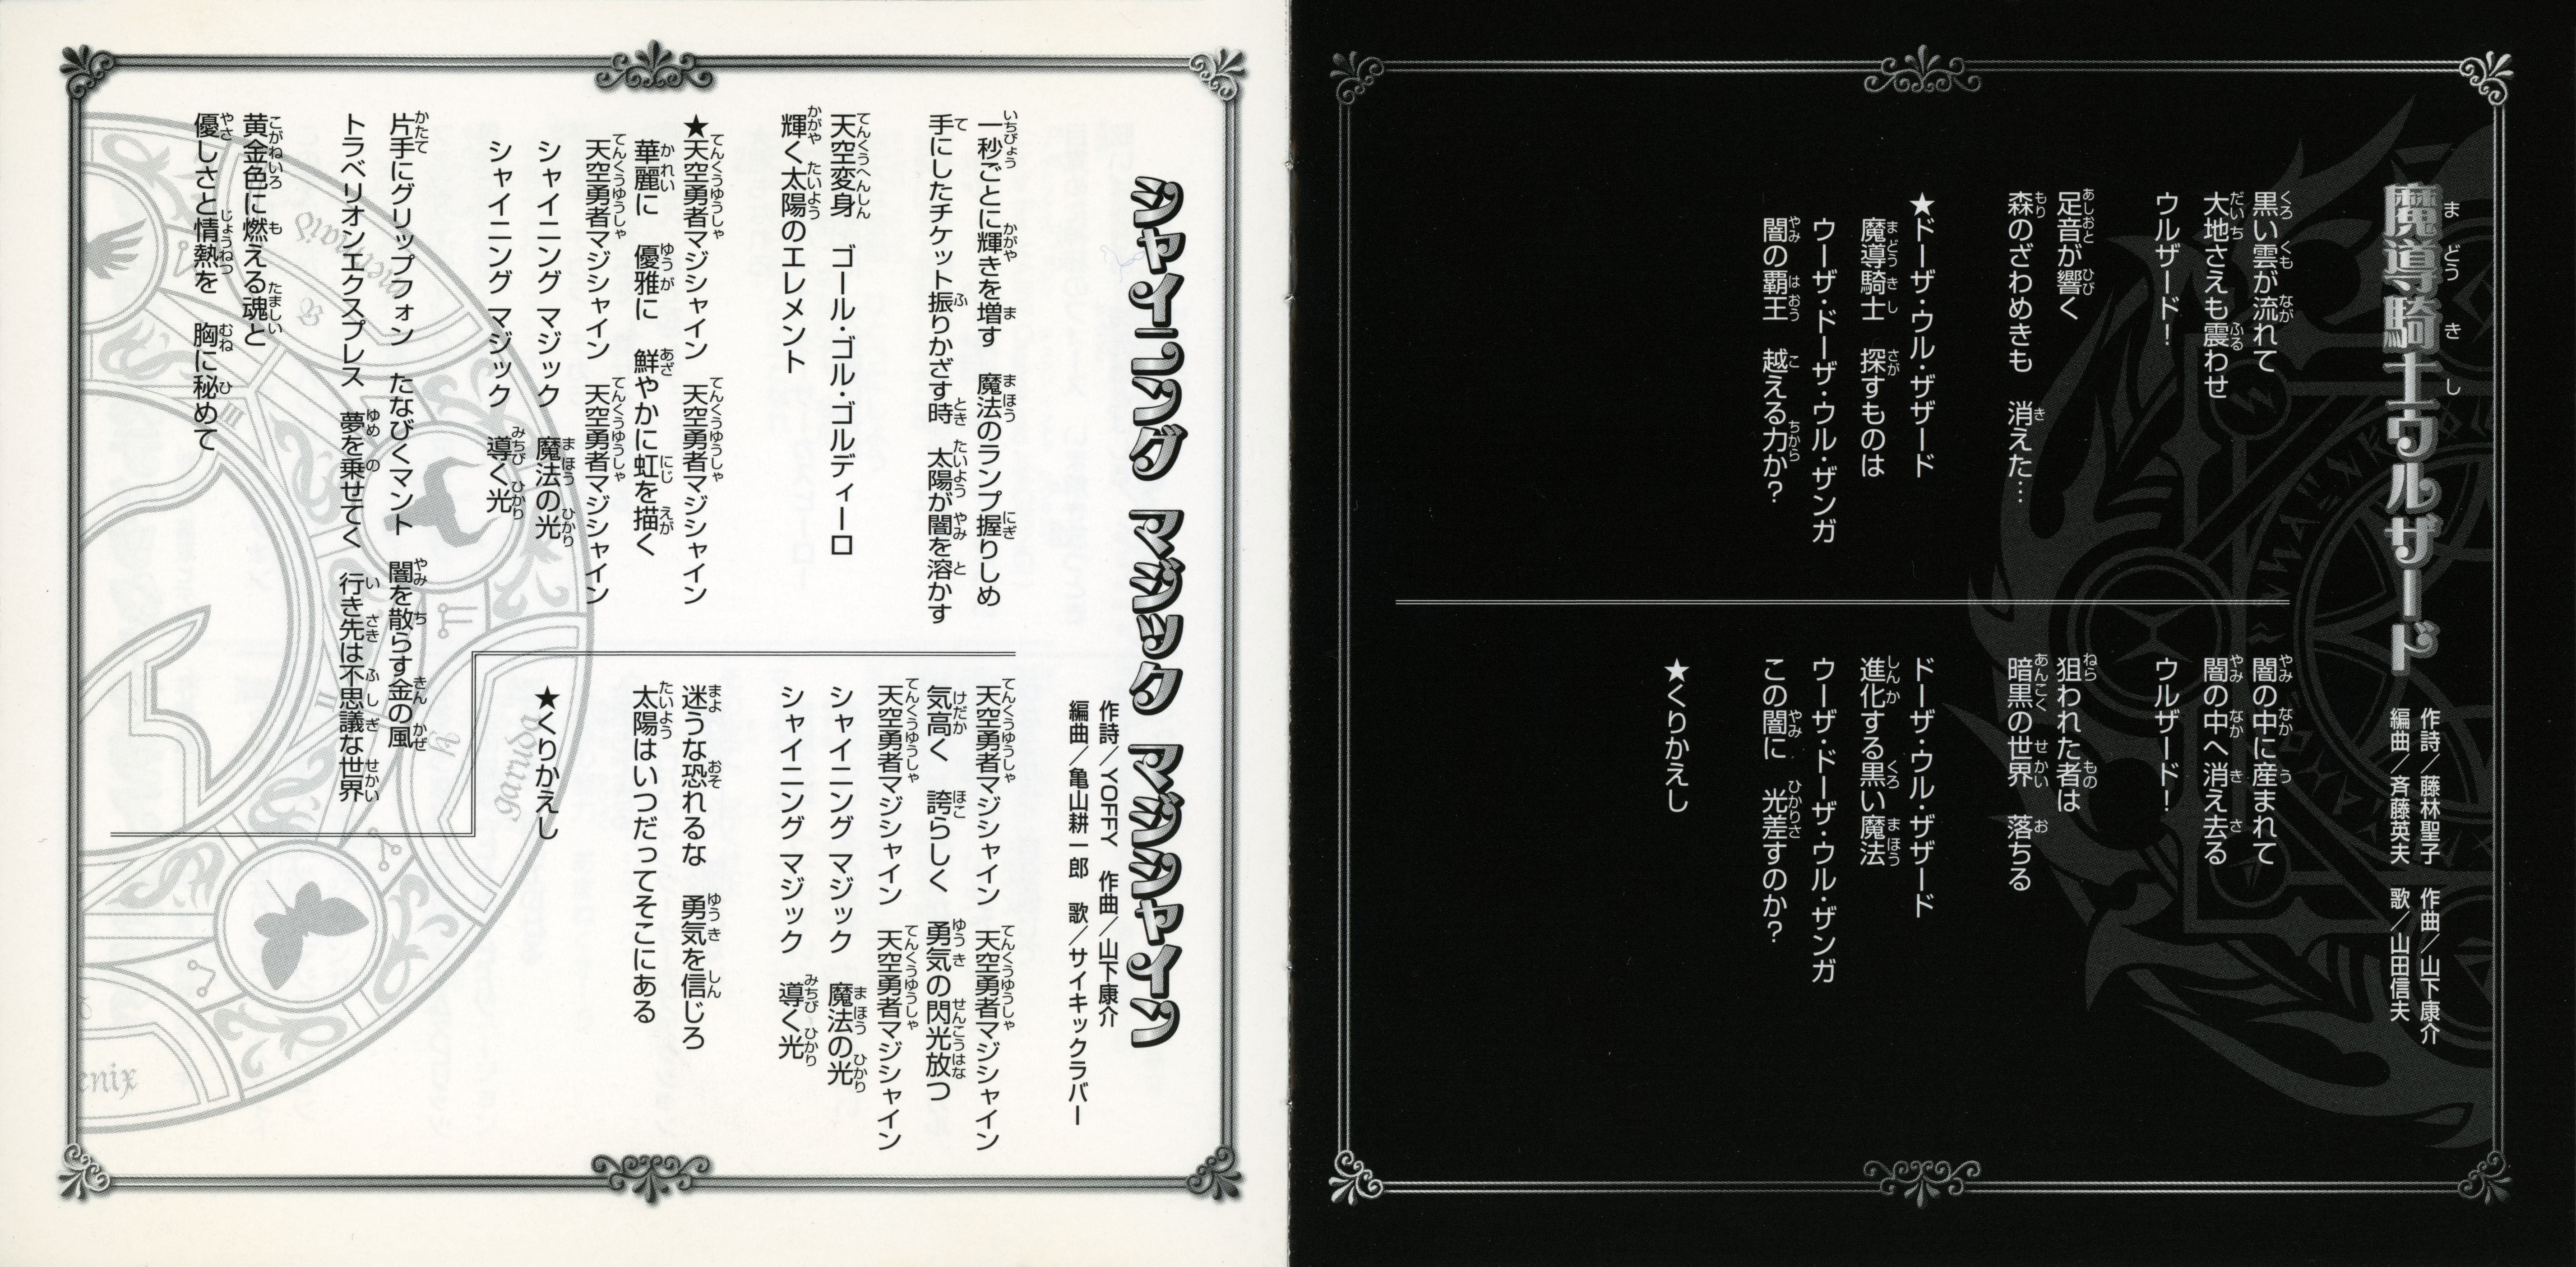 魔導騎士ウルザード
作詩／藤林聖子　作曲／山下康介
編曲／斉藤英夫　歌／山田信夫
黒い雲が流れて
大地さえも震わせ
ウルザード！
足音が響く
森のざわめきも　消えた…
★ドーザ・ウル・ザザード
魔導騎士　探すものは
ウーザ・ドーザ・ウル・ザンガ
闇の覇王　越える力か？
闇の中に産まれて
闇の中へ消え去る
ウルザード！
狙われた者は
暗黒の世界　落ちる
ドーザ・ウル・ザザード
進化する黒い魔法
ウーザ・ドーザ・ウル・ザンガ
この闇に　光差すのか？
★くりかえし
シャイニング マジック マジシャイン
作詩／YOFFY　作曲／山下康介
編曲／亀山耕一郎　歌／サイキックラバー
一秒ごとに輝きを増す　魔法のランプ握りしめ
手にしたチケット振りかざす時　太陽が闇を溶かす
天空変身　ゴール・ゴル・ゴルディーロ
輝く太陽のエレメント
★天空勇者マジシャイン　天空勇者マジシャイン
華麗に　優雅に　鮮やかに虹を描く
天空勇者マジシャイン　天空勇者マジシャイン
シャイニング マジック　魔法の光
シャイニング マジック　導く光
片手にグリップフォン　たなびくマント　闇を散らす金の風
トラベリオンエクスプレス　夢を乗せてく　行き先は不思議な世界
黄金色に燃える魂と
優しさと情熱を　胸に秘めて
天空勇者マジシャイン　天空勇者マジシャイン
気高く　誇らしく　勇気の閃光放つ
天空勇者マジシャイン　天空勇者マジシャイン
シャイニング マジック　魔法の光
シャイニング マジック　導く光
迷うな恐れるな　勇気を信じろ
太陽はいつだってそこにある
★くりかえし
mermaid
garuda
enix